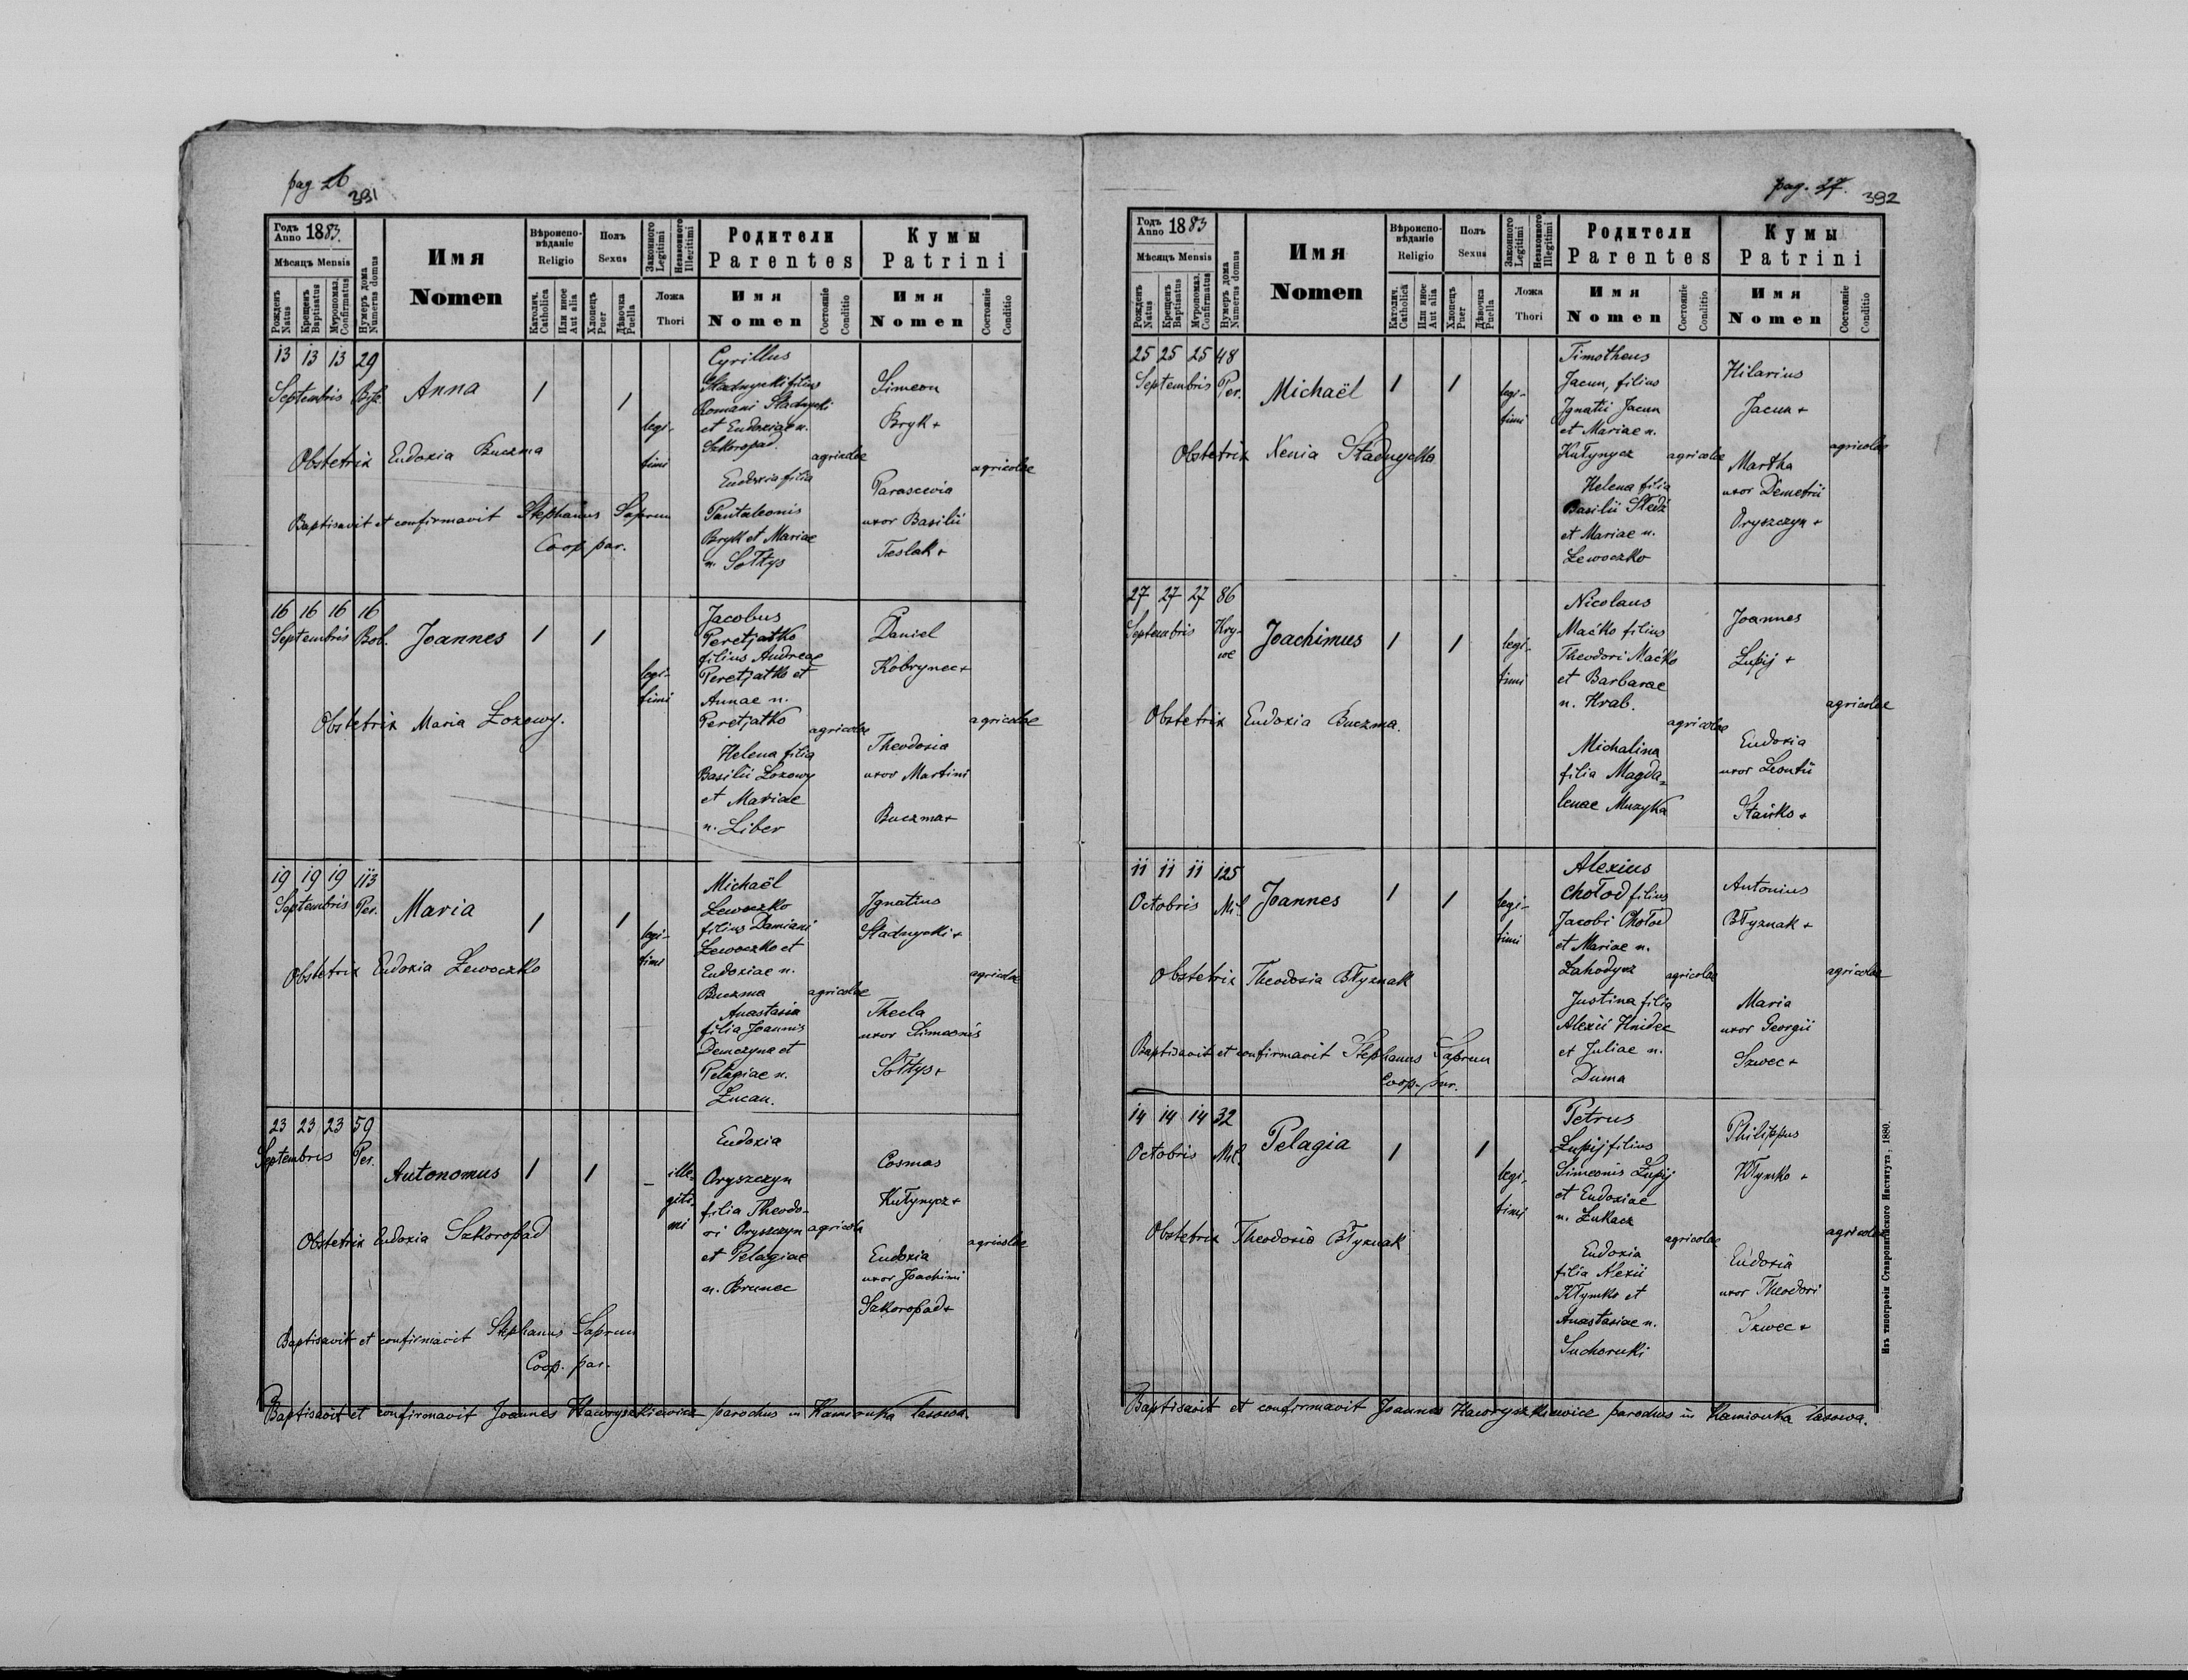 pag 26
391
Годъ Anno 1883.
Мѣсяцъ Mensis
Рожденъ Natus
Крещенъ Baptisatus
Муропомаз. Confirmatus
Нумеръ дома Numerus domus
Имя
Nomen
Вѣроиспо-
вѣданіе
Religio
Католич. Catholica
Или иное Aut alia
Полъ
Sexus
Хлопецъ Puer
Дѣвочка Puella
Законного Legitimi
Незаконного Illegitimi
Ложа
Thori
Родители
Parentes
Имя
Nomen
Состояніе Conditio
Кумы
Patrini
Имя
Nomen
Состояніе Conditio
13 13 13 29
Septembris
Anna
legi-
timi
Cyrillus
Stadnycki filius
Romani Stadnycki
et Eudoxiae n.
Szkoropad.
Eudoxia filia
Pantaleonis
Bryk et Mariae
n. Sołtys
agricolae
Simeon
Bryk +
Parascevia
uxor Basilii
Teslak +
agricolae
Obstetrix Eudoxia Buczma
Baptisavit et confirmavit Stephanus Saprun
Coop. par.
16 16 16 16
Septembris Bob.
Joannes
legi-
timi
Jacobus
Peretjatko
filius Andreae
Peretjatko et
Annae n.
Peretjatko
Helena filia
Basilii Łozowy
et Mariae
n. Liber
agricolae
Daniel
Kobrynec +
Theodosia
uxor Martini
Buczma +
agricolae
Obstetrix Maria Łozowy.
19 19 19 113
Septembris Per.
Maria
legi-
timi
Michaël
Lewoczko
filius Damiani
Lewoczko et
Eudoxiae n.
Buczma
Anastasia
filia Joannis
Demczyna et
Pelagiae n.
Zucan.
agricolae
Ignatius
Stadnycki +
Thecla
uxor Simeonis
Sołtys +
agricolae
Obstetrix Eudoxia Lewoczko
23 23 23 59
Septembris Per.
Autonomus
ille-
giti-
mi
Eudoxia
Oryszczyn
filia Theodo-
ri Oryszczyn
et Pelagiae
n. Brunec
agricola
Cosmas
Kułynycz +
Eudoxia
uxor Joachimi
Szkoropad +
agricolae
Obstetrix Eudoxia Szkoropad
Baptisavit et confirmavit Stephanus Saprun
Coop. par.
Baptisavit et confirmavit Joannes Hawryszkiewicz parochus in Kamionka lasowa.
pag. 27.
392
Годъ Anno 1883
Мѣсяцъ Mensis
Рожденъ Natus
Крещенъ Baptisatus
Муропомаз. Confirmatus
Нумеръ дома Numerus domus
Имя
Nomen
Вѣроиспо-
вѣданіе
Religio
Католич. Catholică
Или иное Aut alia
Полъ
Sexus
Хлопецъ Puer
Дѣвочка Puella
Законного Legitimi
Незаконного Illegitimi
Ложа
Thori
Родители
Parentes
Имя
Nomen
Состояніе Conditio
Кумы
Patrini
Имя
Nomen
Состояніе Conditio
25 25 25 48
Septembris Per.
Michaël
legi-
timi
Timotheus
Jacun, filius
Ignatii Jacun
et Mariae n.
Kułynycz
Helena filia
Basilii Śledź
et Mariae n.
Lewoczko
agricolae
Hilarius
Jacun +
Martha
uxor Demetrii
Oryszczyn +
agricolae
Obstetrix Xenia Stadnycka
27 27 27 86
Septembris Kry-
we
Joachimus
legi-
timi
Nicolaus
Maćko filius
Theodori Maćko
et Barbarae
n. Hrab.
Michalina
filia Magda-
lenae Muzyka
agricolae
Joannes
Łupij +
Eudoxia
uxor Leontii
agricolae
Obstetrix Eudoxia Buczma.
11 11 11 125
Octobris Mil.
Joannes
legi-
timi
Alexius
Chołod filius
Jacobi Chołod
et Mariae n.
Łahodycz
Justina filia
Alexii Hnidec
et Juliae n.
Duma
agricolae
Antonius
Błyznak +
Maria
uxor Georgii
Szwec +
agricolae
Obstetrix Theodosia Błyznak
Baptisavit et confirmavit Stephanus Saprun
Coop. par.
14 14 14 32
Octobris Mil.
Pelagia
legi-
timi
Petrus
Łupij filius
Simeonis Łupij
et Eudoxiae
n. Łukacz
Eudoxia
filia Alexii
Kłymko et
Anastasiae n.
Suchoruki
agricolae
Philippus
Kłymko +
Eudoxia
uxor Theodori
Szwec +
agricolae
Obstetrix Theodosia Błyznak
Baptisavit et confirmavit Joannes Hawryszkiewicz parochus in Kamionka lasowa.
Изъ типографіи Ставропигійского Института, 1880.